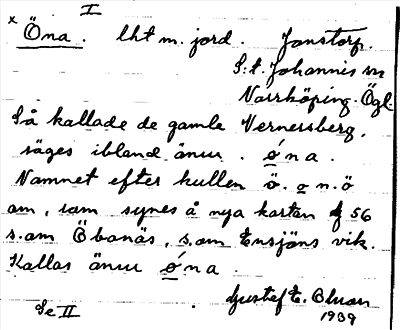 I
x Öna. lht m. jord. Jonstorp.
S:t Johannis sn
Norrköping. Ögl.
Så kallade de gamle Vernersberg,
säges ibland ännu. óna.
Namnet efter kullen ö. o n. ö
om, som synes å nya kartan 56
s.om Öbonäs, s.om Ensjöns vik.
Kallas ännu óna.
Gustef E. Bluon
Se II 1939